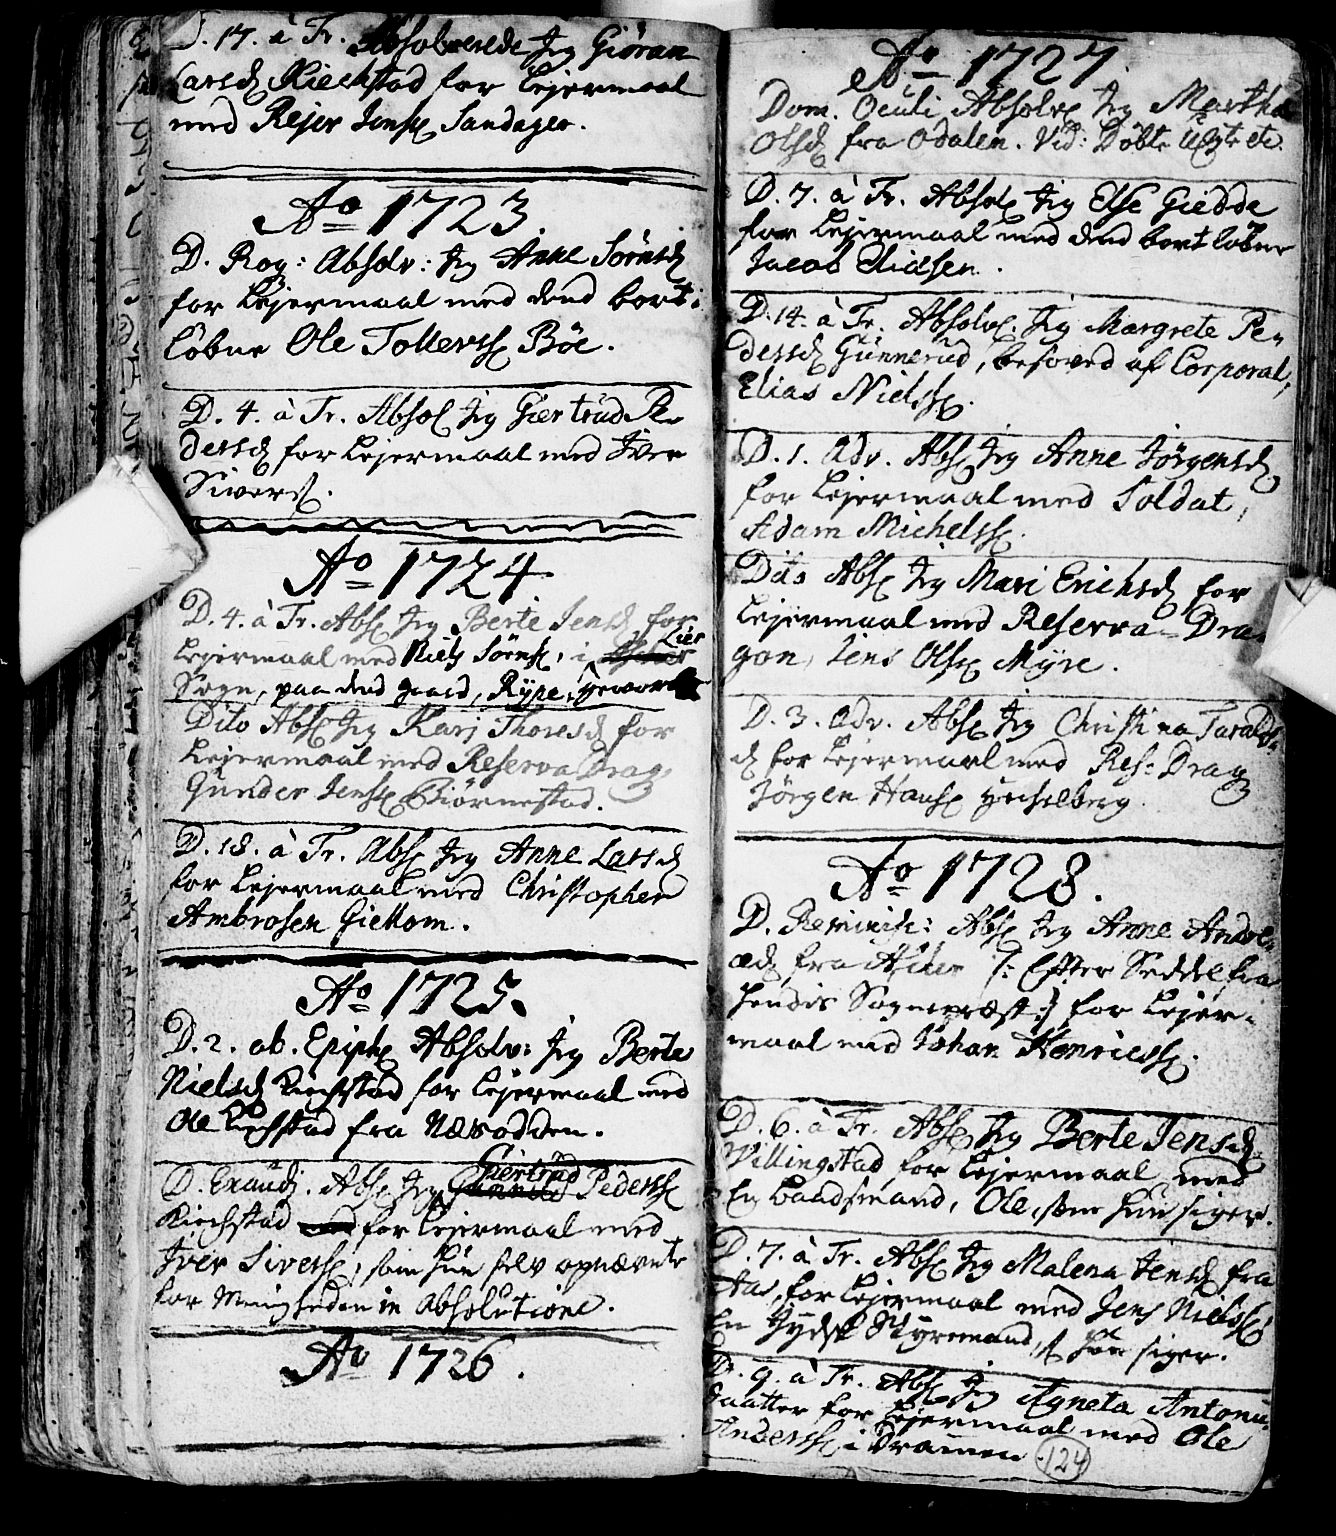 D. 17. à Tr. Absolverede Jeg Giøran
Larsd Kiechstad for Lejermaal
med Rejer Jens Sandager.
Ao 1723
D. Rog: Absolv: Jeg Anne Sørnsd
for Lejermaal med dend bort-
løbne Ole Tollerss Böe.
D. 4. à Tr. Absol Jeg Giertrud Pe-
dersd for Lejermaal med Iver
Siverss.
Ao 1724
D. 4. à Tr. Abs Jeg Berte Jensd for
Lejermaal med Niels Sørns, i Lier
Sogn, paa dend gaard, Rype,
Dito Abs Jeg Kari Thoresd for
Lejermaal med Reserva Drag.
Gunder Jens Biørnestad.
D. 18. à Tr. Abs Jeg Anne Larsd
for Lejermaal med Christopher
Ambrosen Giellom.
Ao 1725.
D. 2. ab. Epiph Absolv: Jeg Berte
Nielsd Kiechstad for Lejermaal med
Ole Kiechstad fra Næsodden.
Giertrud
D. Exaudi. Abs Jeg Gunnild Pederss
Kiechstad med for Lejermaal med
Iver Siverss, som hun selv opnævnte
for Menigheden in Absolutione.
Ao 1726.
Ao 1727
Dom. Oculi Absolv Jeg Martha
Olsd fra Odalen. Vid: Døbte
D. 7. à Tr. Absol Jeg Else Giedde
for Lejermaal med dend bortløbne
Jacob Eliasen.
D. 14. à Tr. Absolv. Jeg Margrete Pe-
dersd Gunnerud, besoved af Corporal,
Elias Nielss.
D. 1. Adv. Abs Jeg Anne Jørgensd
for Lejermaal med Soldat,
Adam Michelss.
Dito Abs Jeg Mari Erichsd for
Lejermaal med Reserva-Dra-
gon, Jens Ols Myre.
D. 3. Adv. Abs Jeg Christina Taralds-
d for Lejermaal med Res: Drag
Jørgen Hans Hechelberg.
Ao 1728.
D. Reminisc: Abs Jeg Anne
fra Asker /: Efter Seddel fra
hendis Sognepræst :/ for Lejer-
maal med Johan Henricss.
D. 6. à Tr. Abs Jeg Berte Jensd.
Villingstad for Lejermaal med
En Baadsmand, Ole, som hun siger.
D. 7. à Tr. Abs Jeg Malena Jensd fra
Aas, for Lejermaal med Jens Nielss,
En Jydsk Styremand, hun siger.
D. 9. à Tr. Abs Jeg Agneta Antoni-
daatter for Lejermaal med Ole
Anderss i Drammen
124